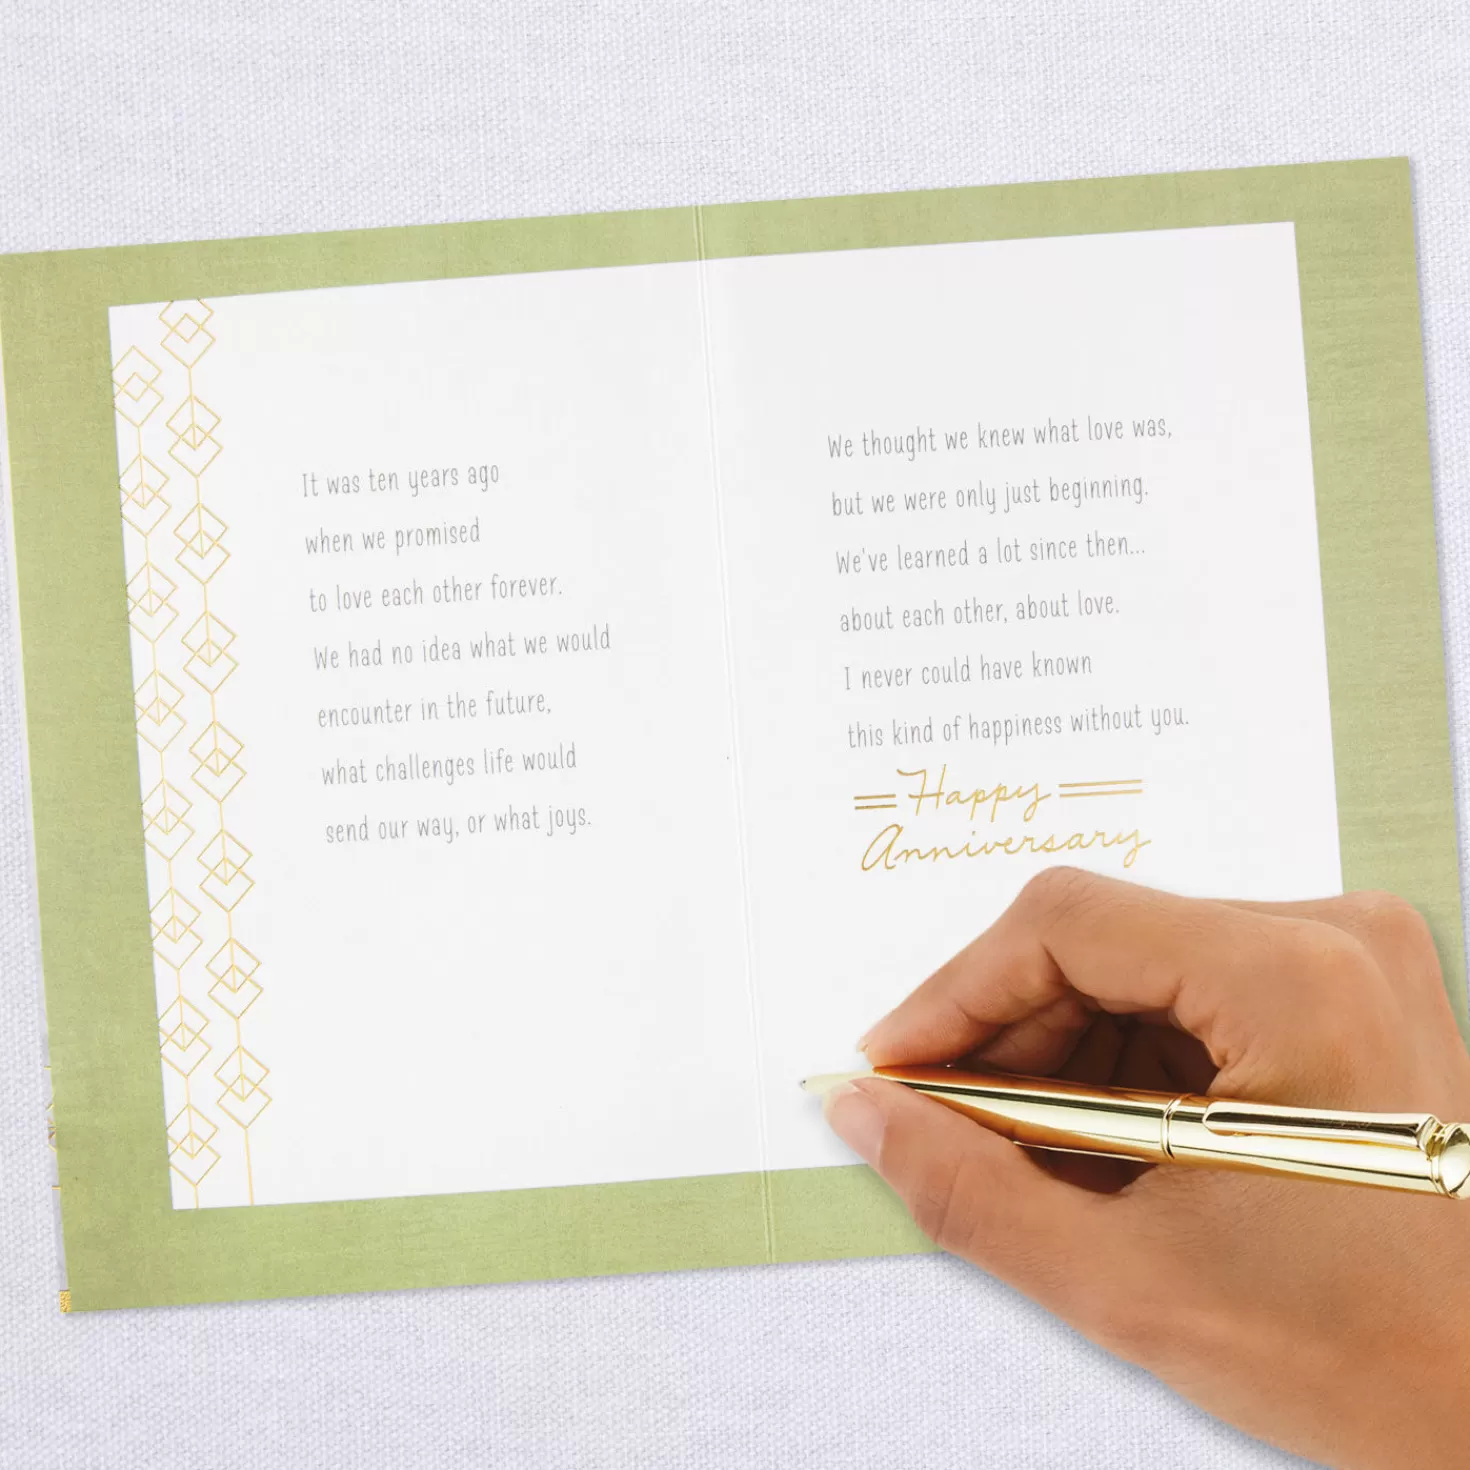 It was ten years ago
when we promised
to love each other forever.
We had no idea what we would
encounter in the future,
what challenges life would
send our way, or what joys.
We thought we knew what love was,
but we were only just beginning.
We've learned a lot since then...
about each other, about love.
I never could have known
this kind of happiness without you.
Happy
Anniversary